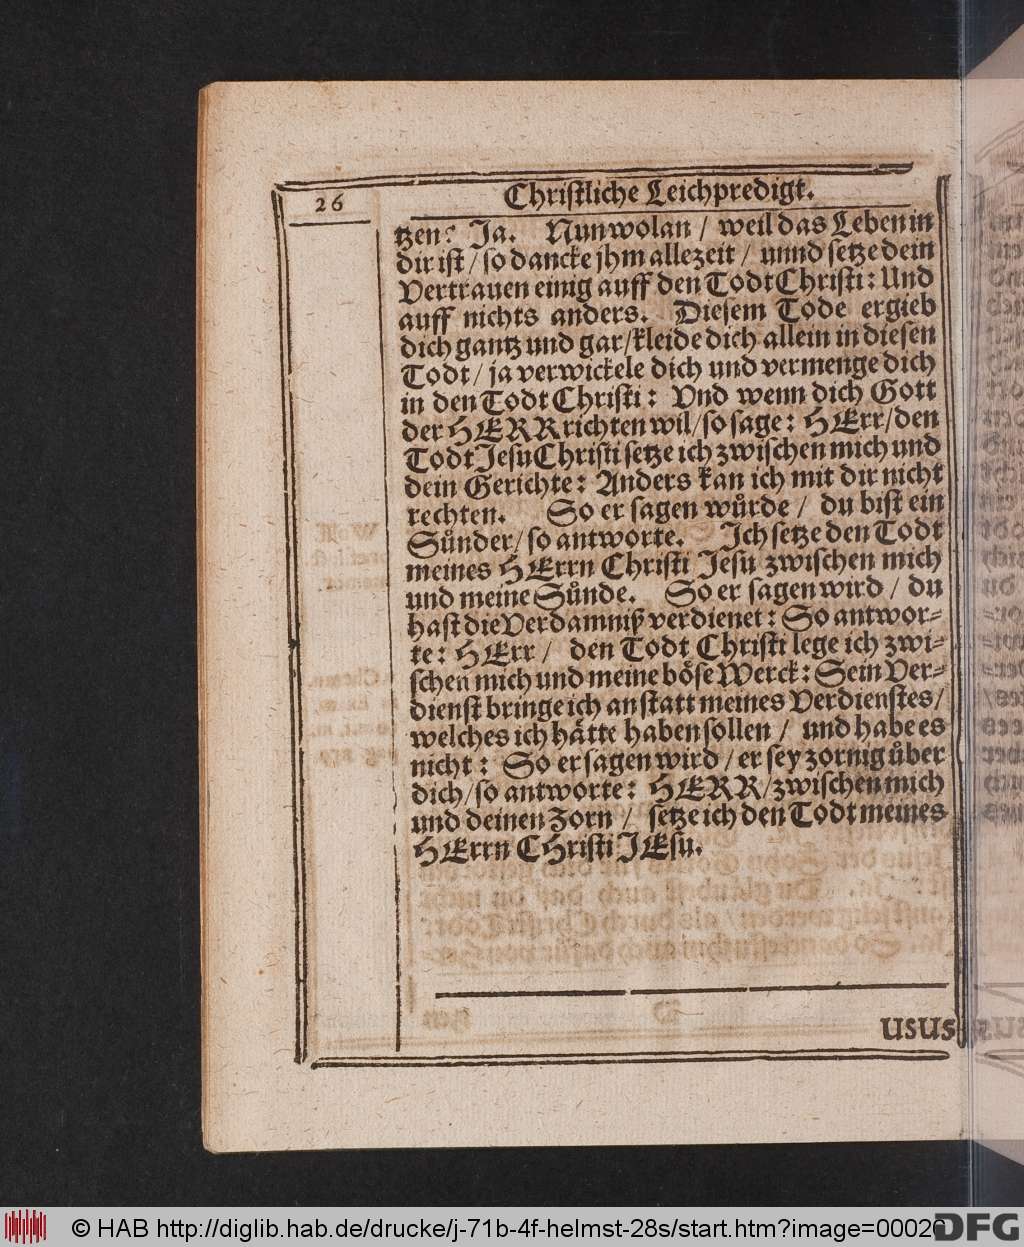 26
Christliche Leichpredigt.
tzen? Ja. Nun wolan / weil das Leben in
dir ist / so dancke jhm allezeit / unnd setze dein
Vertrauen einig auff den Todt Christi: Und
auff nichts anders. Diesem Tode ergieb
dich gantz und gar / kleide dich allein in diesen
Todt / ja verwickele dich und vermenge dich
in den Todt Christi: Vnd wenn dich Gott
der HERR richten wil / so sage: HErr / den
Todt Jesu Christi setze ich zwischen mich und
dein Gerichte: Anders kan ich mit dir nicht
rechten. So er sagen wůrde / du bist ein
Sůnder / so antworte. Ich setze den Todt
meines HErrn Christi Jesu zwischen mich
und meine Sůnde. So er sagen wird / du
hast die Verdamniß verdienet: So antwor-
te: HErr / den Todt Christi lege ich zwi-
schen mich und meine bőse Werck: Sein Ver-
dienst bringe ich an statt meines Verdienstes /
welches ich hätte haben sollen / und habe es
nicht: So er sagen wird / er sey zornig ůber
dich / so antworte: HERR / zwischen mich
und deinen Zorn / setze ich den Todt meines
HErrn CHristi JEsu.
USUS
© HAB http://diglib.hab.de/drucke/j-71b-4f-helmst-28s/start.htm?image=00026
DFG